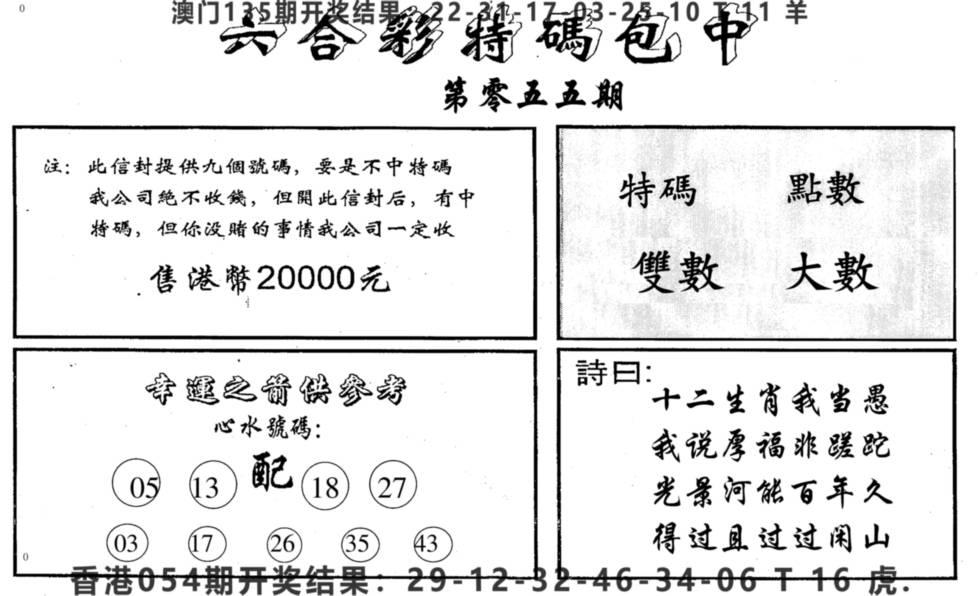 澳门135期开奖结果：22-31-17-03-25-10 T 11 羊
六合彩特碼包中
第零五五期
注：此信封提供九個號碼，要是不中特碼
我公司絕不收錢，但開此信封后，有中
特碼，但你没賭的事情我公司一定收
售港幣20000元
特碼 點數
雙數 大數
幸運之前供參考
心水號碼：
05 13 配 18 27
03 17 26 35 43
詩曰：
十二生肖我当愚
我说厚福非蹉跎
光景河能百年久
得过且过过闲山
香港054期开奖结果：29-12-32-46-34-06 T 16 虎.